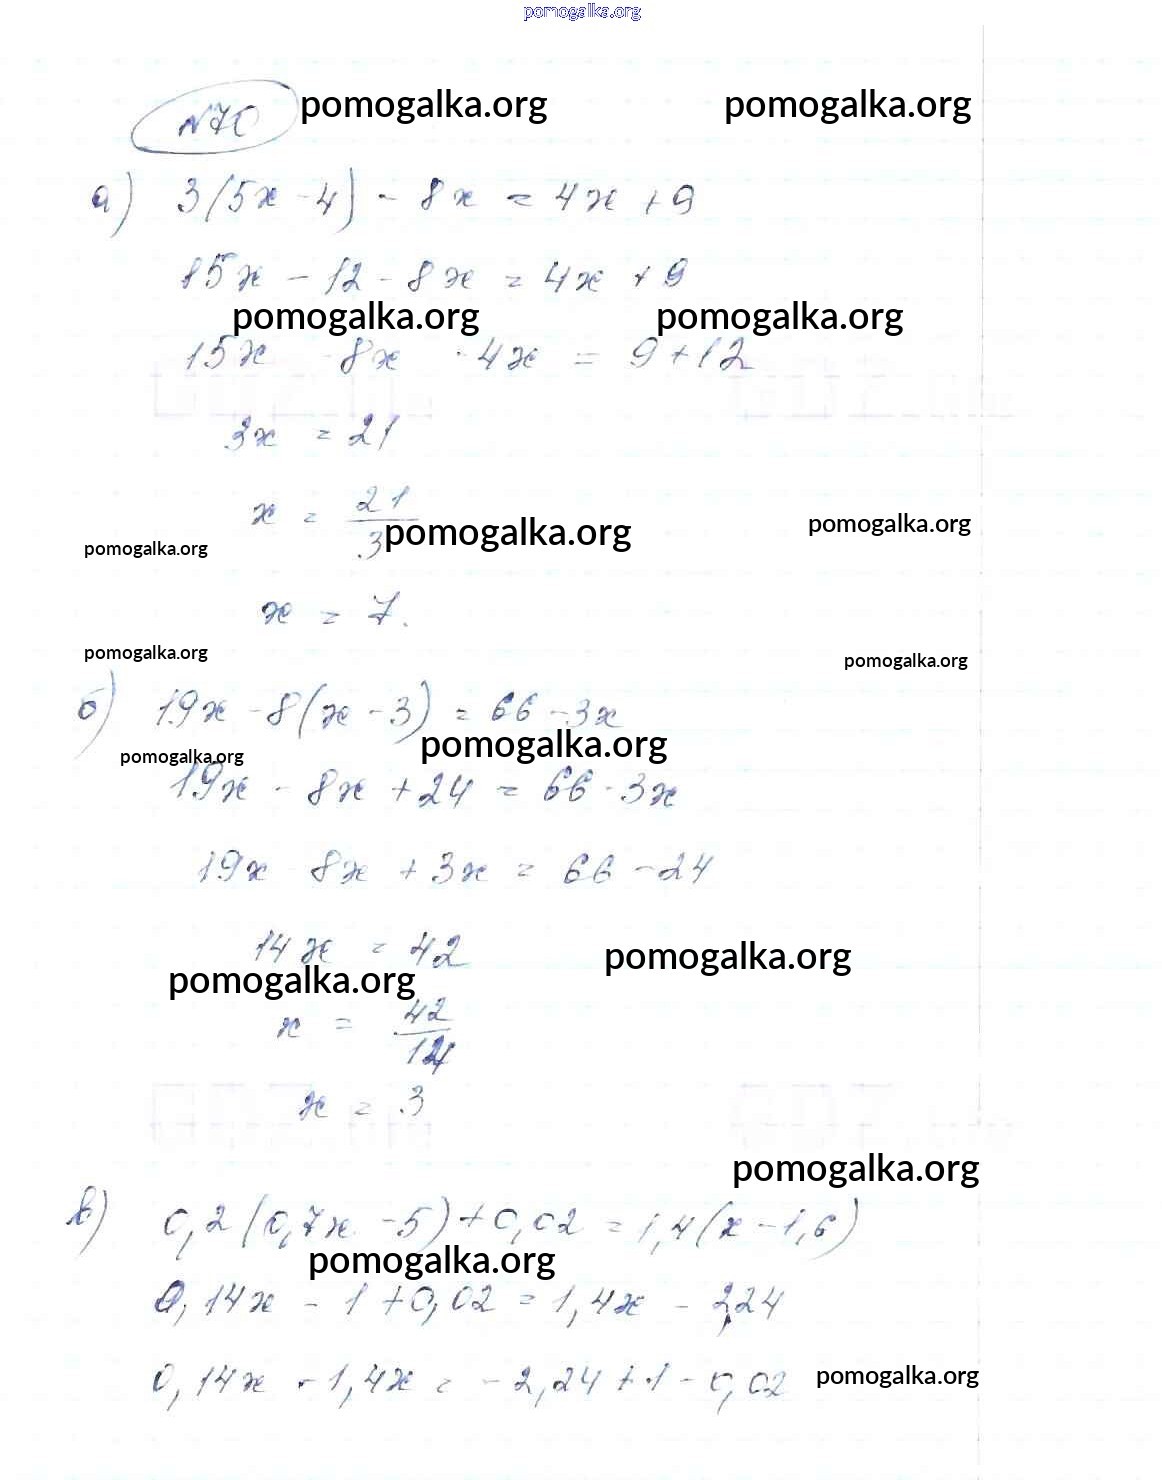 pomogalka.org
№70 pomogalka.org pomogalka.org
а) 3(5x - 4) - 8x = 4x + 9
15x - 12 - 8x = 4x + 9
pomogalka.org pomogalka.org
15x - 8x - 4x = 9 + 12
3x = 21
x = 21/3
pomogalka.org pomogalka.org
pomogalka.org
x = 7.
pomogalka.org pomogalka.org
б) 19x - 8(x - 3) = 66 - 3x
pomogalka.org pomogalka.org
19x - 8x + 24 = 66 - 3x
19x 8x + 3x = 66 - 24
14x = 42
pomogalka.org pomogalka.org
x = 42/14
x = 3
pomogalka.org
в) 0,2(0,7x - 5) + 0,02 = 1,4(x - 1,6)
pomogalka.org
0,14x - 1 + 0,02 = 1,4x - 2,24
0,14x - 1,4x = -2,24 + 1 - 0,02 pomogalka.org